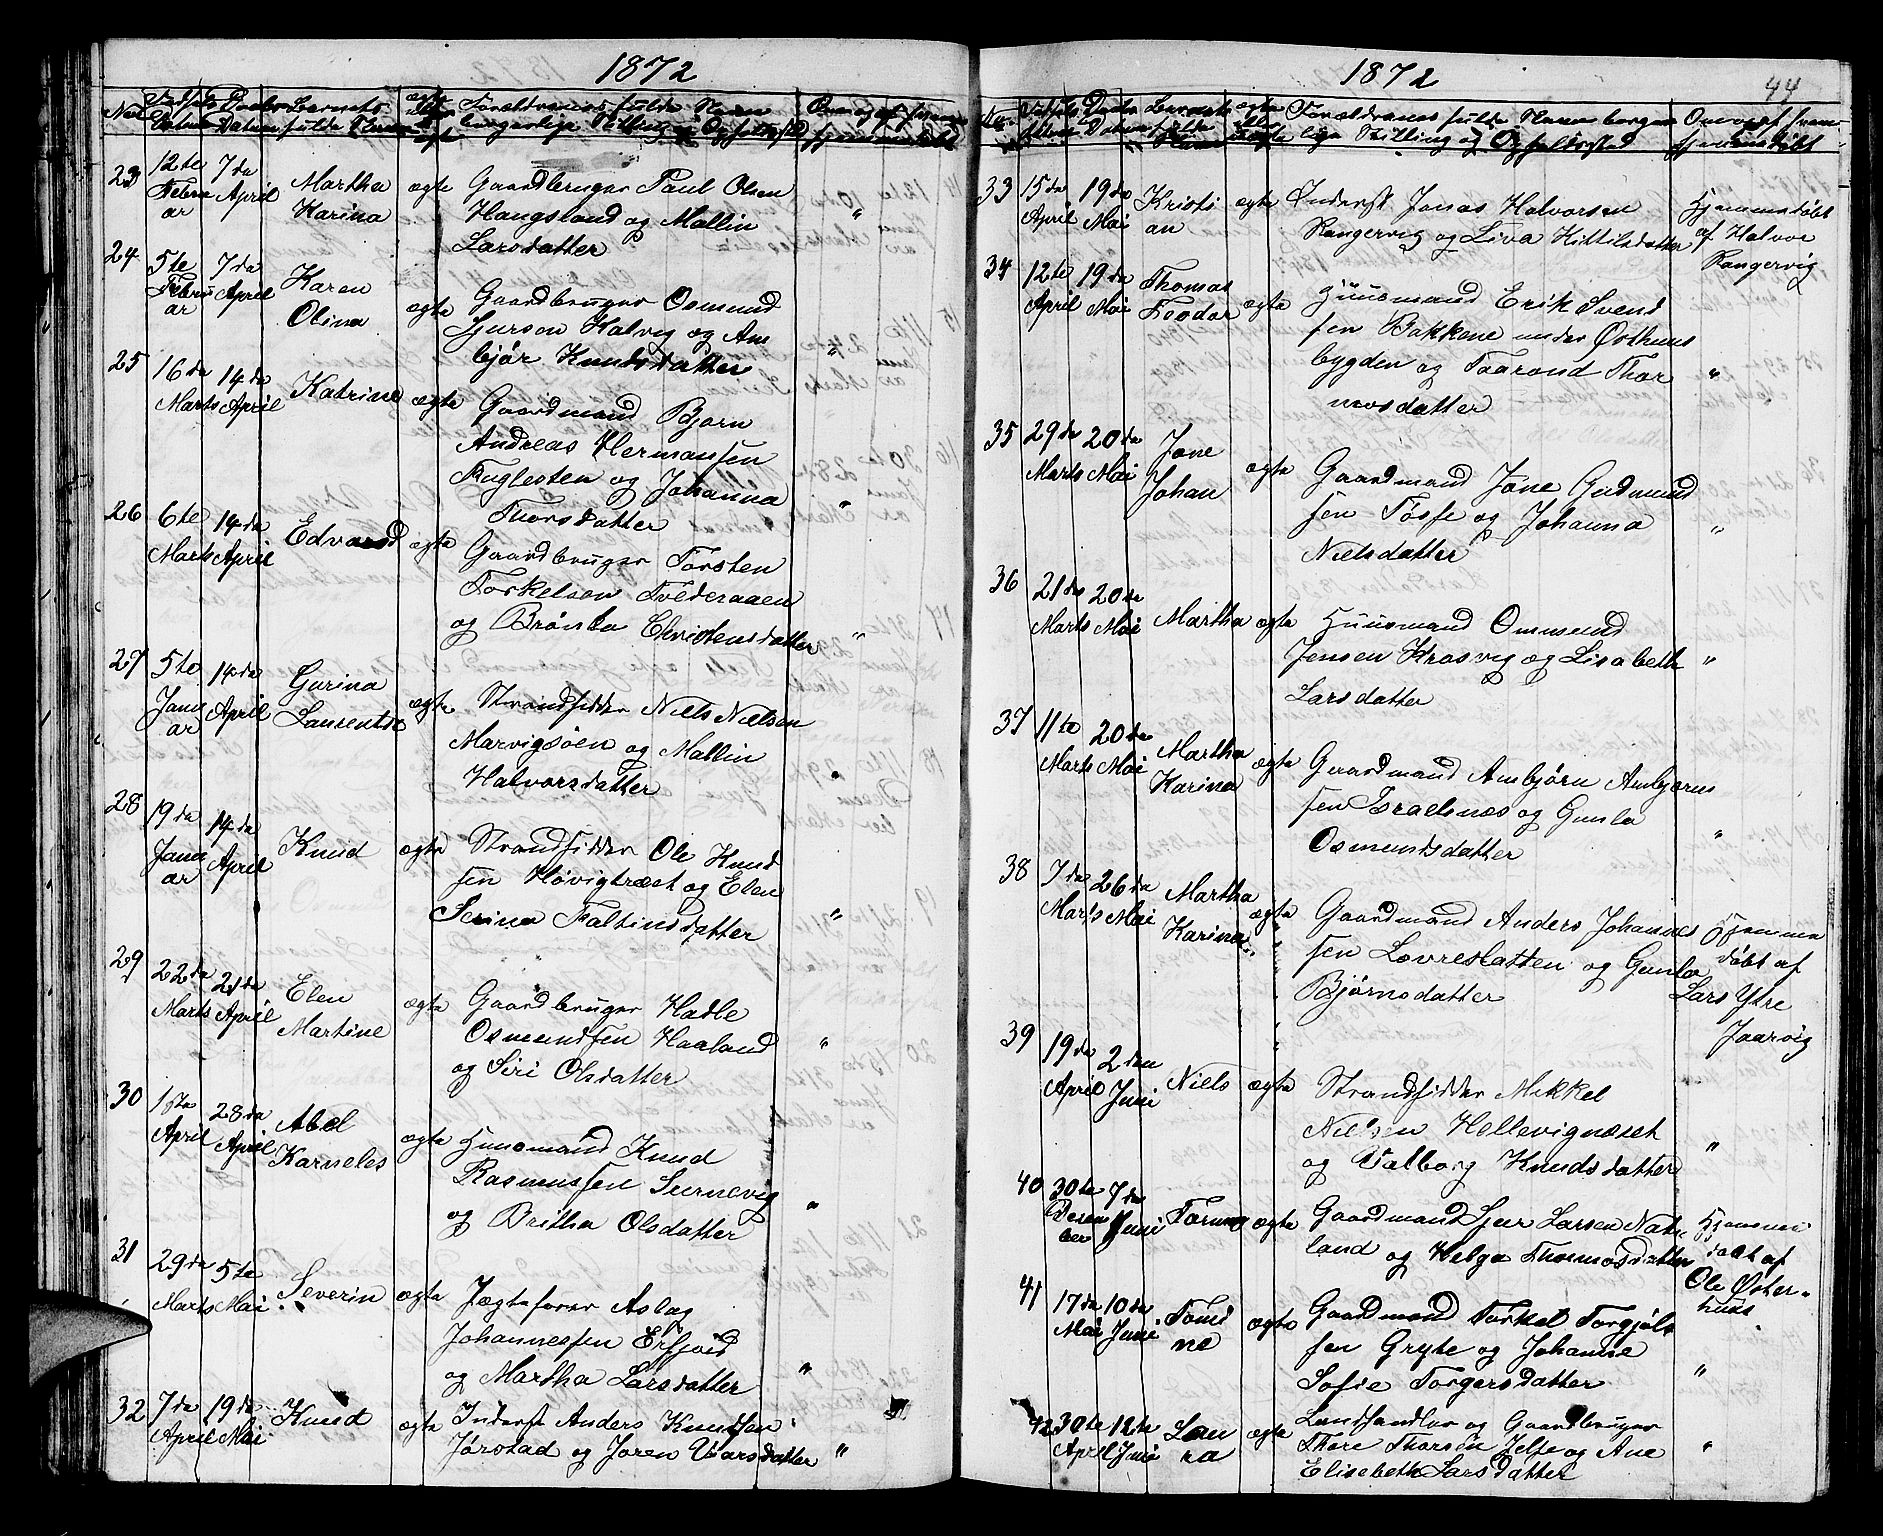 1872
No. Fødsels Datum Daabs Datum Barnets fulde Navn ægte eller uægte Forældrenes fulde Navn borgerlige Stilling og Opholdssted Om og af hvem hjemmedøbt
23 12te Februar 7da April Martha Karina ægte Gaardbruger Paul Olsen
Haugsland og Mallin
Larsdatter "
24 5te Februar 7da April Karen Olina ægte Gaardbruger Osmund
Sjursen Halvig og Am
bjør Knudsdatter "
25 16da Marts 14da April Katrine ægte Gaardmand Bjørn
Andreas Hermansen
Fuglesten og Johanna
Thorsdatter "
26 6te Marts 14da April Edvard ægte Gaardbruger Torsten
Torkelsen Tvederaaen
og Brønla Christensdatter "
27 5te Januar 14da April Gurina Laurentse ægte Strandsidder Niels Nielsen
Marvigsøen og Mallin
Halvorsdatter "
28 19da Januar 14da April Knud ægte Strandsidder Ole Knud
sen Høvigtræet og Elen
Serina Faltinsdatter "
29 22da Marts 21da April Elen Martine ægte Gaardbruger Hadle
Osmundsen Haaland
og Siri Olsdatter "
30 1sta April 28da April Abel Karneles ægte Huusmand Knud
Rasmussen
og Britha Olsdatter "
31 29da Marts 5te Mai Severin ægte Jægtefører Aslag
Johannessen Erfjord
og Martha Larsdatter "
32 7da April 19da Mai Knud ægte Inderst Anders Knudsen
Jørstad og Joren Larsdatter "
1872
44
No. Fødsels Datum Daabs Datum Barnets fulde Navn ægte eller uægte Forældrenes fulde Navn borger
lige Stilling og Opholdssted Om og af hvem hjemmedøbt
33 15da April 19da Mai Kristian ægte Inderst Jonas Halvorsen
Rangervig og Liva Kittilsdatter Hjemmedøbt af Halvor Rangervig
34 12te April 19da Mai Thomas Feodor ægte Huusmand Erik Svend
sen Bakkene under Østhuus
bygden og Taarond Thor
mosdatter "
35 29da Marts 20da Mai Jone Johan ægte Gaardmand Jone Gudmund
sen Tøsse og Johanna
Nielsdatter "
36 21da Marts 20da Mai Martha ægte Huusmand Ommund
Jensen Krosvig og Lisabeth
Larsdatter "
37 11te Marts 20da Mai Martha Karina ægte Gaardmand Ambjørn Ambjørns
sen Israelsnæs og Gunla
Osmundsdatter "
38 7da Marts 26da Mai Martha Karina ægte Gaardmand Anders Johannes
sen Lovresletten og Gunla
Bjørnsdatter Hjemme døbt af Lars Ytre Jaarvig
39 19da April 2den Juni Niels ægte Strandsidder Mikkel
Nielsen Hellevignæset
og Valborg Knudsdatter "
40 30te Desember 7da Juni Torine ægte Gaardmand Sjur Larsen Nat
land og Helga Thormosdatter Hjemme døbt af Ole Østerhuus.
41 17da Mai 10da Juni Tomine ægte Gaardmand Torkel Torgjøls
sen Gryte og Johanne
Sofie Torgersdatter "
42 30te April 12te Juni Laura ægte Landhandler og Gaardbruger
Thore Thorsen Jelse og Ane
Elisebeth Larsdatter "